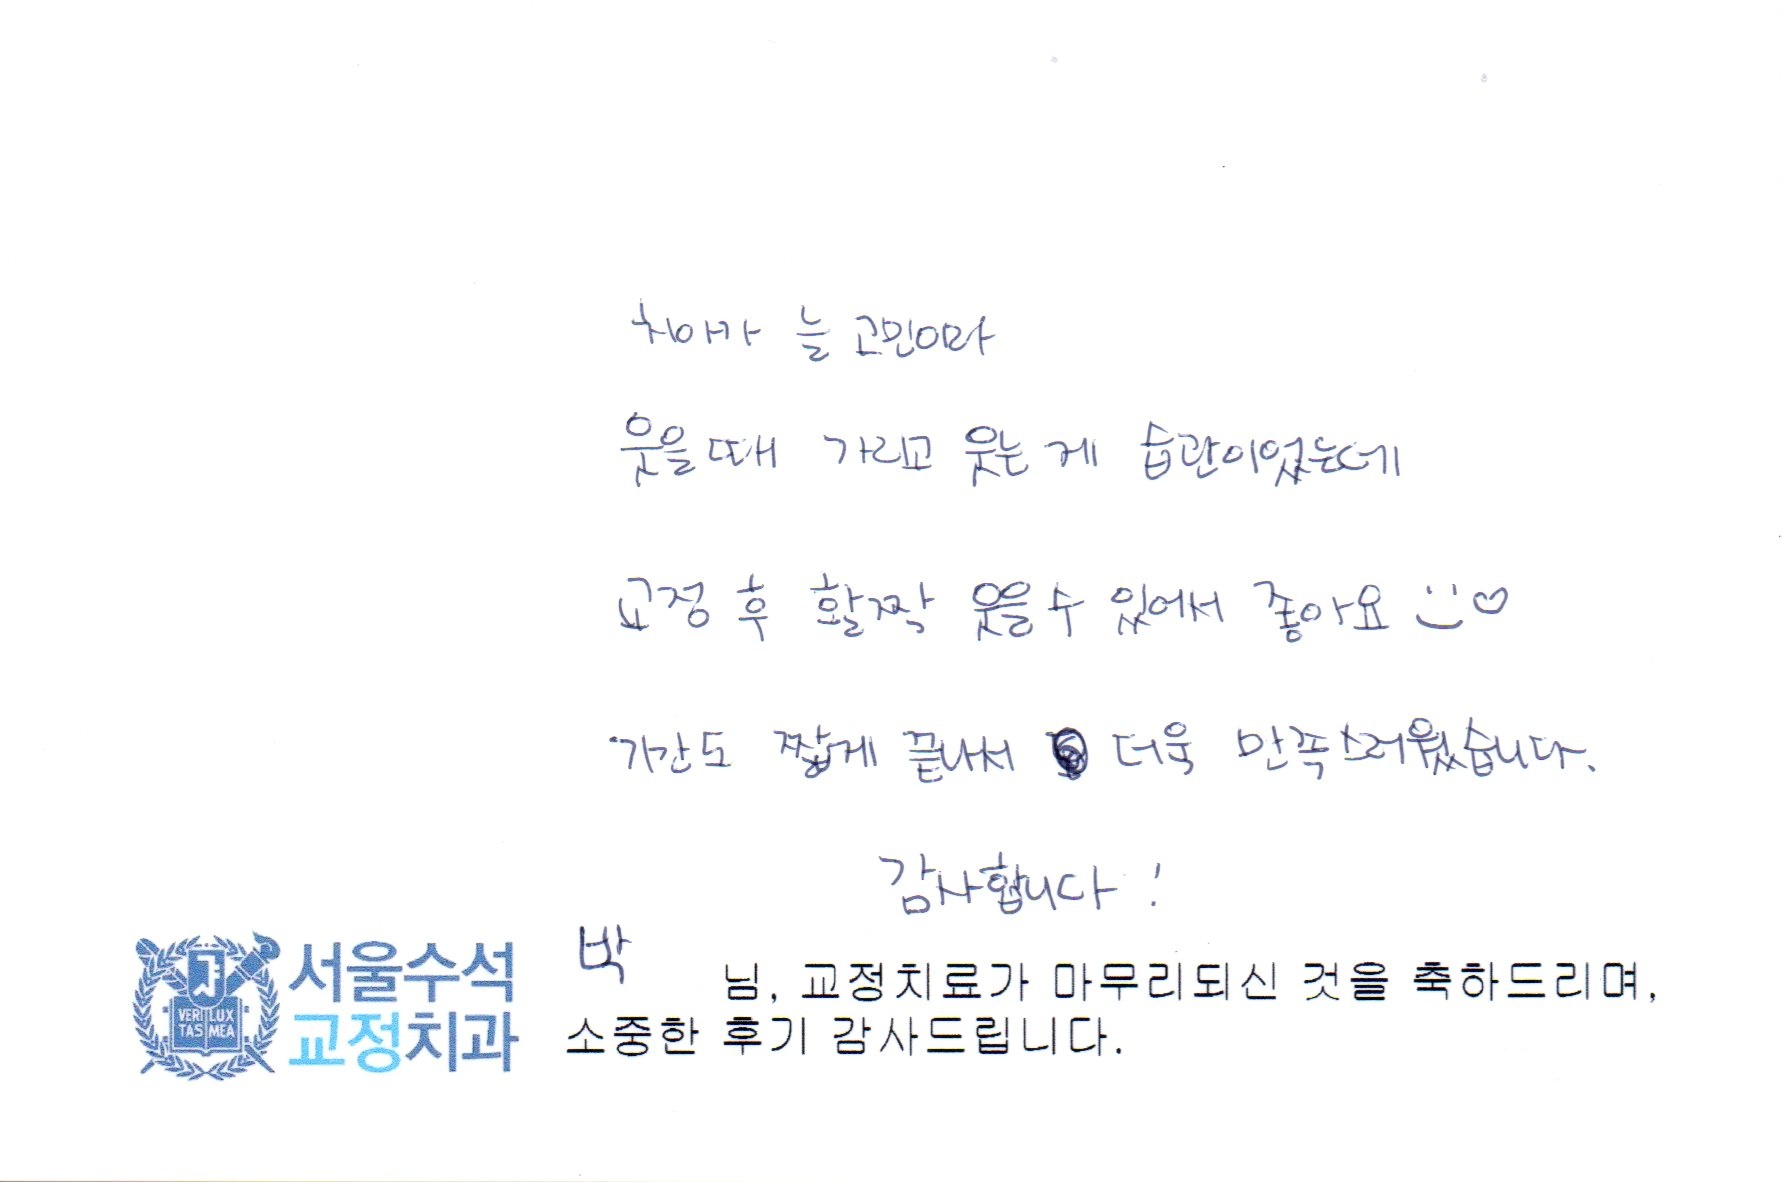 치아가 늘 고민이라
웃을때 가리고 웃는 게 습관이었는데
교정 후 활짝 웃을 수 있어서 좋아요
기간도 짧게 끝나서 더욱 만족스러웠습니다.
감사합니다!
서울수석
교정치과
VERI LUX
TAS MEA
박 님, 교정치료가 마무리되신 것을 축하드리며,
소중한 후기 감사드립니다.